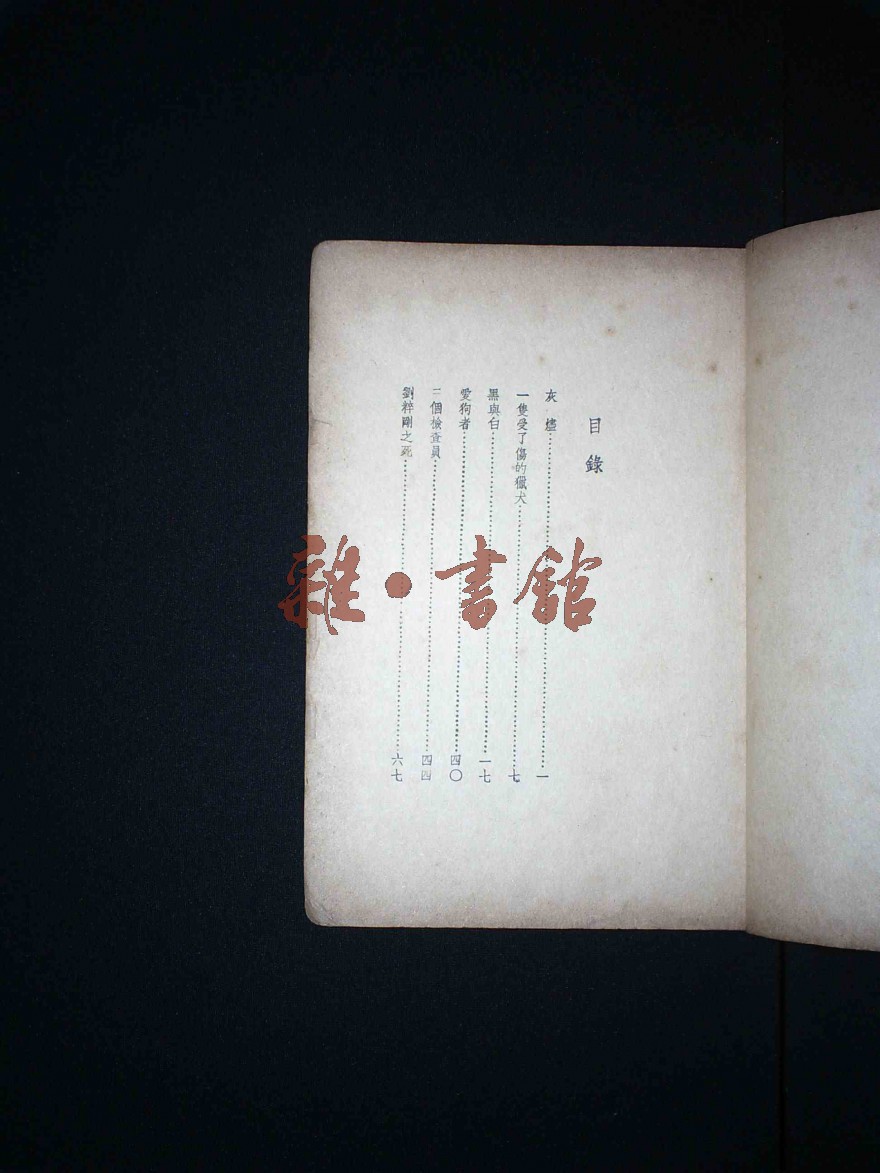 目錄
灰燼……一
一隻受了傷的獵犬……七
黑與白……一七
愛狗者……四〇
三個檢查員……四四
劉粹剛之死……六七
雜·書館